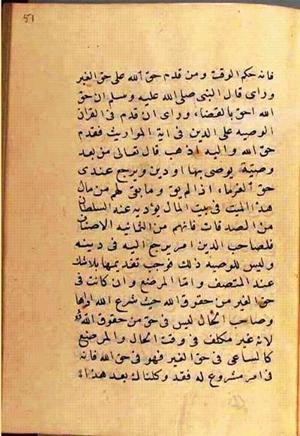 51
فانه حكم الوقت ومن قدم حق الله على حق الغير
وراى قال النبى صلى الله عليه وسلم ان حق
الله احق بالقضا، وراى ان قدم فى القرآن
الوصيه على الدين فى اية المواريث فقدم
حق الله واليه اذهب قال تعالى من بعد
وصيّة يوصى بها او دين ويرجح عندى
حق الغرما، اذا لم يق وما بقى لهم من مال
هذا الميت فى بيت المال يؤديه عنه السلطان
من الصدقات فانهم من الثمانيه الاصناف
فلصاحب الدين امر يرجع اليه فى دينه
وليس للوصيه ذلك فوجب تقديمها بلا شك
عند المنصف واما المرضع وان كانت فى
حق الغير من حقوق الله حيث شرع الله
وصاحب الحال ليس فى حق من حقوق الله
لانه غير مكلف فى وقت الحال والمرضع
كالساعى فى حق الغير فهو فى حق الله فانه
فى امر مشروع له فقد وكلناك بعد هذا